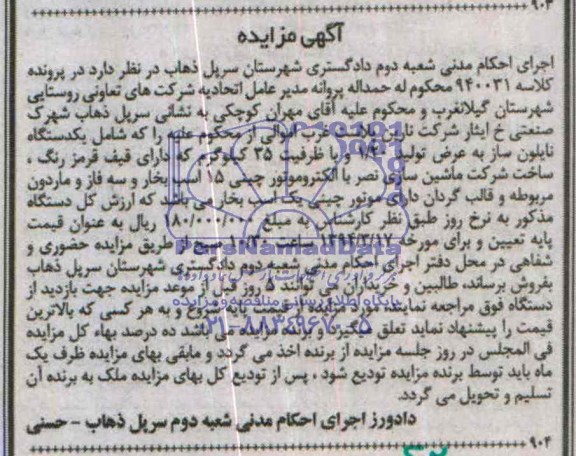 ۹۰۳
آگهی مزایده
اجرای احکام مدنی شعبه دوم دادگستری شهرستان سرپل ذهاب در نظر دارد در پرونده
کلاسه ۹۴۰۰۳۱ محکوم له حمداله پروانه مدیر عامل اتحادیه شرکت های تعاونی روستایی
شهرستان گیلانغرب و محکوم علیه آقای مهران کوچکی به نشانی سرپل ذهاب شهرک
صنعتی خ ایثار شرکت نارین پلاست غرب اموالی از محکوم علیه را که شامل یکدستگاه
نایلون ساز به عرض تولید و با ظرفیت ۳۵ کیلوگرم که دارای قیف قرمز رنگ ،
ساخت شرکت ماشین سازی نصر با الکتروموتور چینی ۱۵ اسب بخار و سه فاز و ماردون
مربوطه و قالب گردان دارای موتور چینی یک اسب بخار می باشد که ارزش کل دستگاه
مذکور به نرخ روز طبق نظر کارشناس به مبلغ ریال به عنوان قیمت
پایه تعیین و برای مورخه ۱۳۹۴/۳/۱۷ ساعت ۱۰/۳۰ صبح از طریق مزایده حضوری و
شفاهی در محل دفتر اجرای احکام مدنی شعبه دوم دادگستری شهرستان سرپل ذهاب
بفروش برساند، طالبین و خریداران می توانند ۵ روز قبل از موعد مزایده جهت بازدید از
دستگاه فوق مراجعه نمایند، مورد مزایده از قیمت پایه شروع و به هر کسی که بالاترین
قیمت را پیشنهاد نماید تعلق میگیرد و برنده مزایده می باشد ده درصد بهاء کل مزایده
فی المجلس در روز جلسه مزایده از برنده اخذ می گردد و مابقی بهای مزایده ظرف یک
ماه باید توسط برنده مزایده تودیع شود ، پس از تودیع کل بهای مزایده ملک به برنده آن
تسلیم و تحویل می گردد.
دادورز اجرای احکام مدنی شعبه دوم سرپل ذهاب - حسنی
۹۰۴
ParsNamadData
پایگاه اطلاع رسانی مناقصه و مزایده
۰۲۱-۸۸۳۴۹۶۷۰-۵